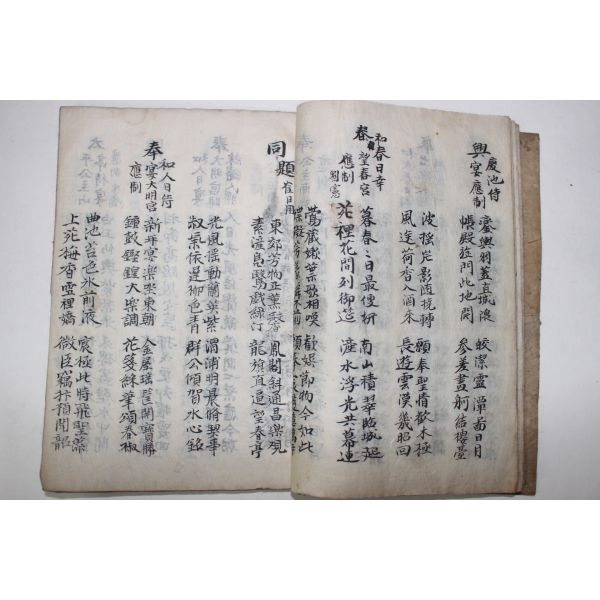 興慶池侍宴應制
鑾輿羽蓋直城隈 皎潔靈潭啚日月
帳殿旌門此地開 參差畫舸結樓臺
波搖岸影随桡轉 願奉聖情歡不極
風送荷香入酒来 長遊雲漢幾昭回
春和春日幸望春宮應制 劉憲
暮春〻日最便妍 南山積翠臨城起
花裡花間列御筵 滻水浮光共幕連
鶯藏嫩葉歌相喚 歡娛節物今如此
同題 崔日用
東郊芳物正薰馨 鳳閣斜通昌樂观
素滻鳧鷖戲綠汀 龍旂直逼望春亭
光風搖動蘭英紫 渭浦明晨脩禊事
叔氣依遲柳色青 群公傾賀水心銘
奉和人日侍宴大明宮應制
新年宴樂東朝 金屋瑤筐開寶勝
鍾鼓鏗鍠大樂調 花箋綵筆頌春椒
曲池苔色氷前液 宸極此時飛聖藻
上苑梅香雪裡嬌 微臣竊抃預聞韶